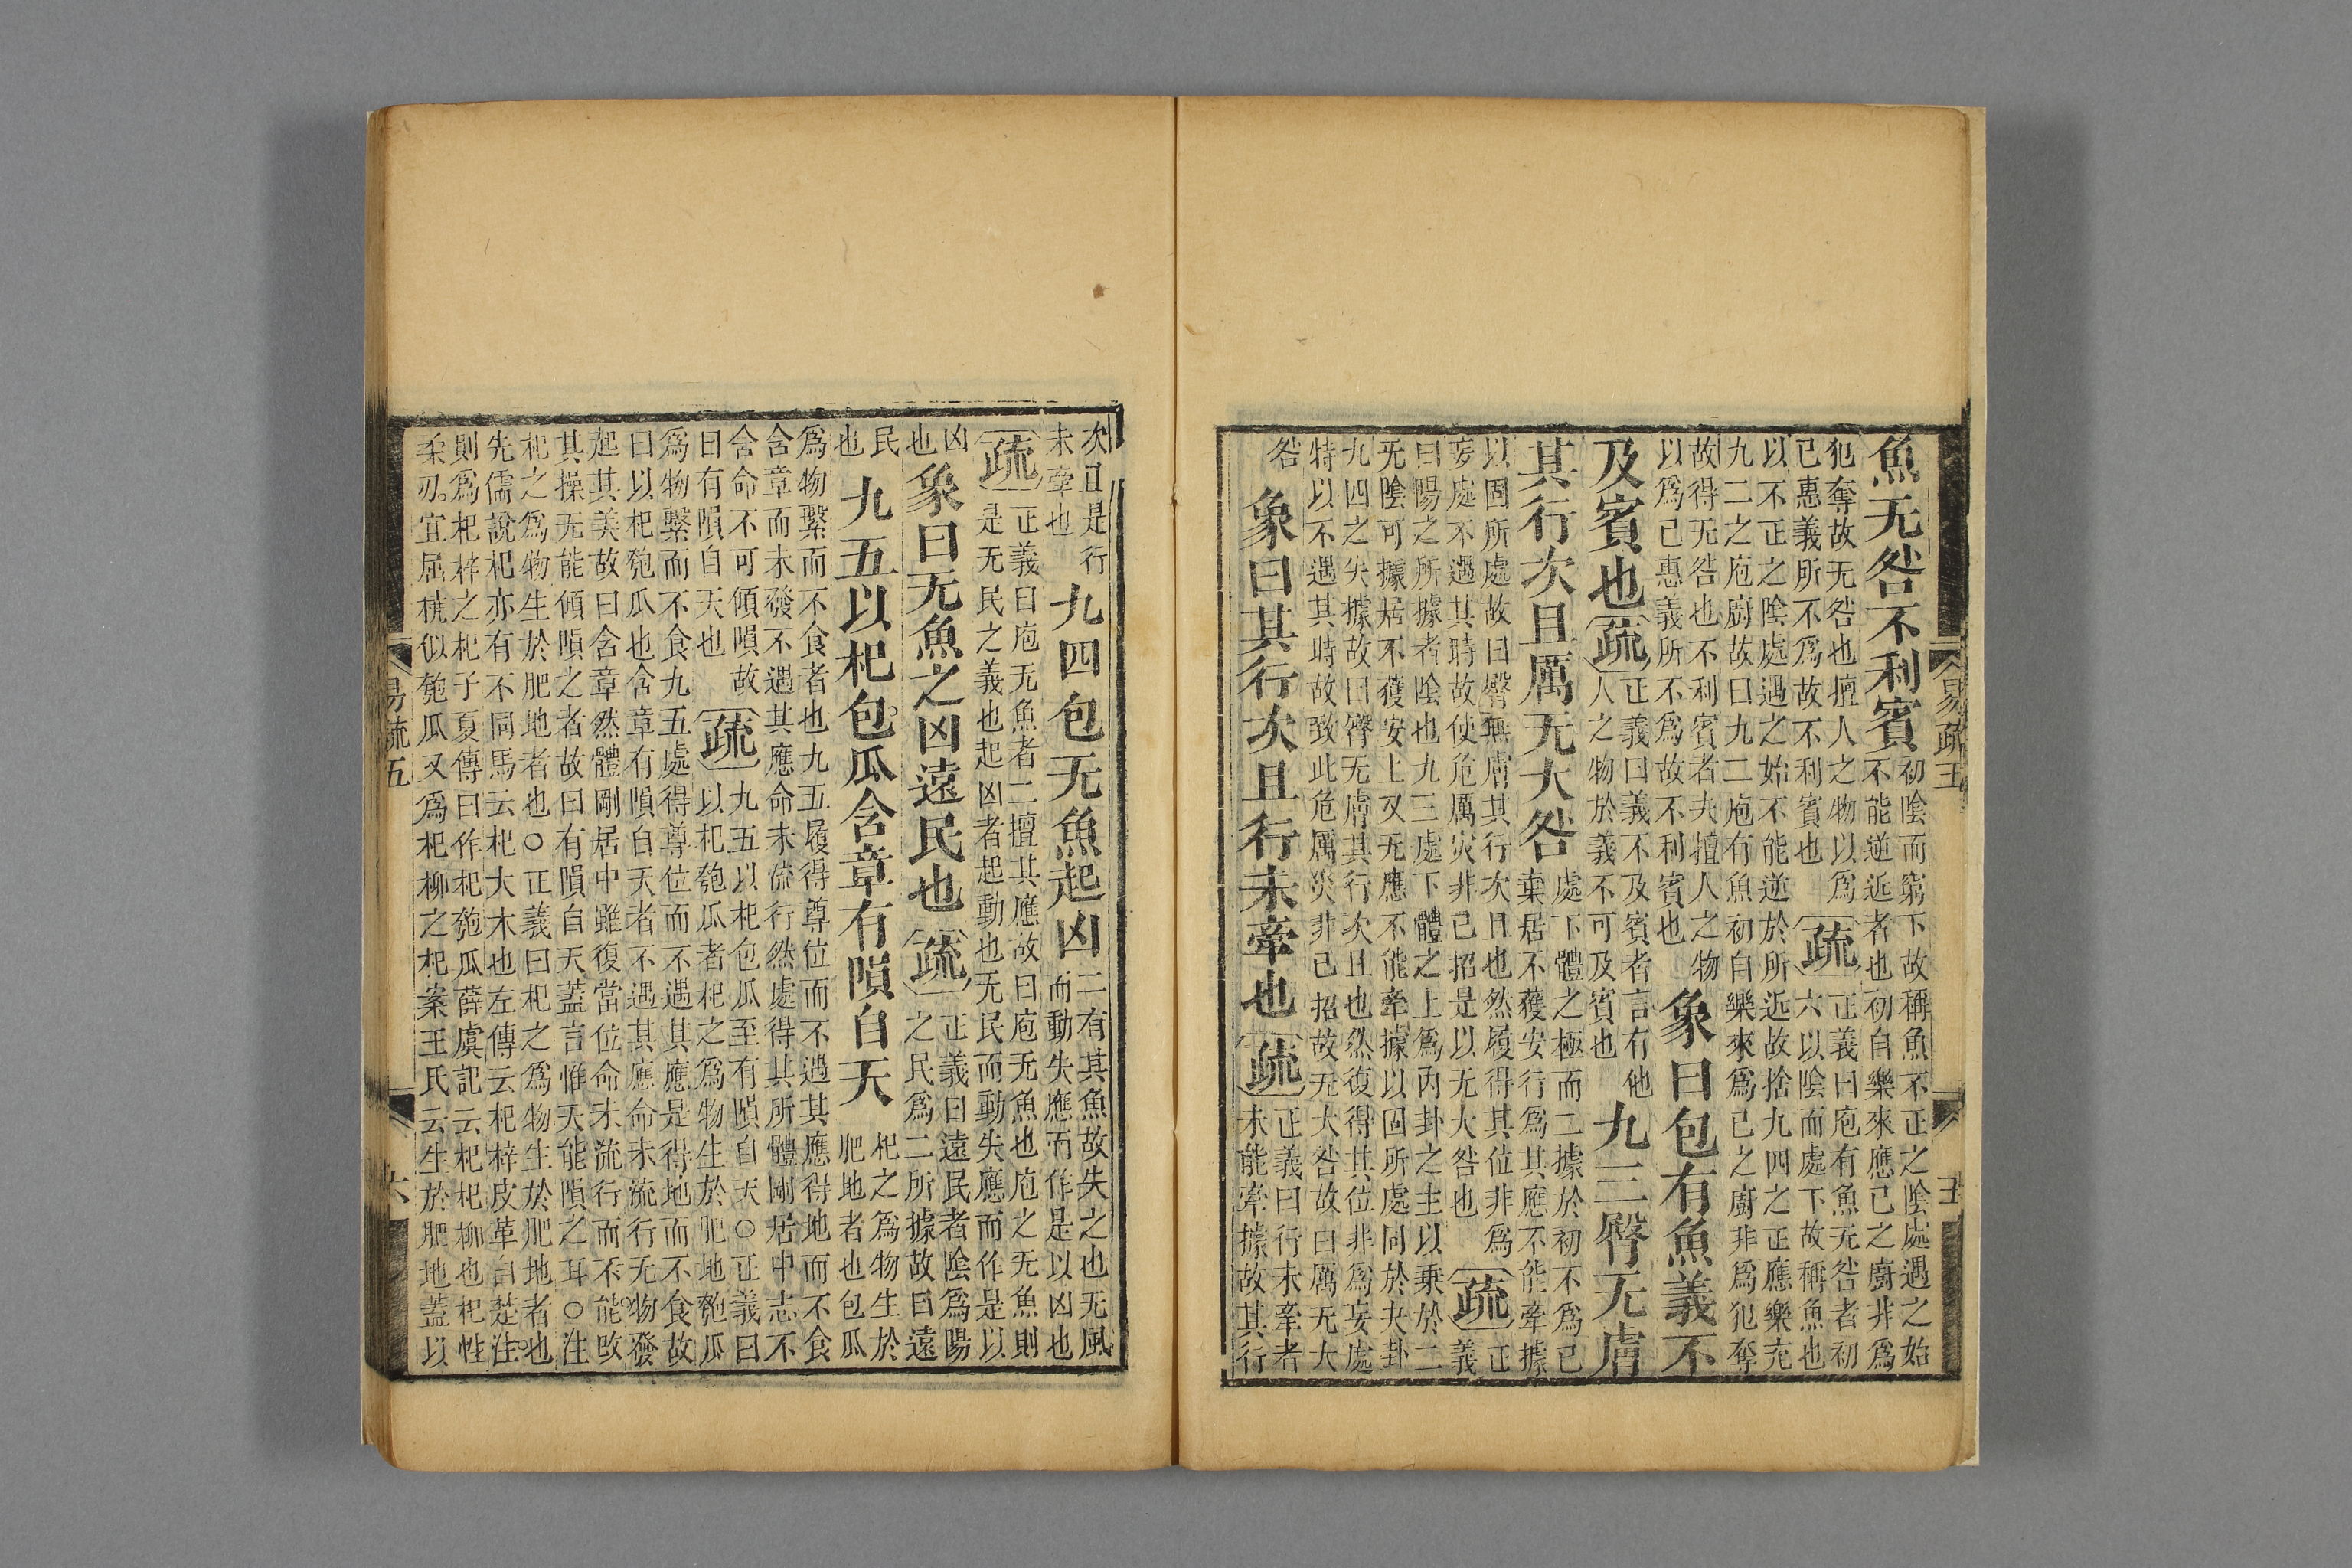 易疏五
五
魚无咎不利賓
初陰而窮下故稱魚不正之陰處遇之始
不能逆近者也初自樂來應已之廚非為
犯奪故无咎也擅人之物以為
已惠義所不為故不利賓也
疏
正義曰庖有魚无咎者初
六以陰而處下故稱魚也
以不正之陰處遇之始不能逆於所近故捨九四之正應樂充
九二之庖廚故曰九二庖有魚初自樂來為已之廚非為犯奪
故得无咎也不利賓者夫擅人之物
以為已惠義所不為故不利賓也
象曰包有魚義不
及賓也疏
正義曰義不及賓者言有他
人之物於義不可及賓也
九三臀无膚
其行次且厲无大咎
處下體之極而二據於初不為已
棄居不獲安行為其應不能牽據
以固所處故曰臀無膚其行次且也然履得其位非為
妄處不遇其時故使危厲灾非已招是以无大咎也
疏
正
義
曰陽之所據者陰也九三處下體之上為內卦之主以乗於二
无陰可據居不獲安上又无應不能牽據以固所處同於夬卦
九四之失據故曰臀无膚其行次且也然復得其位非為妄處
特以不遇其時故致此危厲災非已招故无大咎故曰厲无大
咎
象曰其行次且行未牽也疏
正義曰行未牽者
未能牽據故其行
次且是行
未牽也
九四包无魚起凶
二有其魚故失之也无風
而動失應而作是以凶也
疏
正義曰庖无魚者二擅其應故曰庖无魚也庖之无魚則
是无民之義也起凶者起動也无民而動失應而作是以
凶
也
象曰无魚之凶遠民也疏
正義曰遠民者陰為陽
之民為二所據故曰遠
民
也
九五以杞包瓜含章有隕自天
杞之為物生於
肥地者也包瓜
為物繫而不食者也九五履得尊位而不遇其應得地而不食
含章而未發不遇其應命未流行然處得其所體剛居中志不
舍命不可傾隕故
曰有隕自天也
疏
九五以杞包瓜至有隕自天○正義曰
以杞匏瓜者杞之為物生於肥地匏瓜
為物繫而不食九五處得尊位而不遇其應是得地而不食故
曰以杞匏瓜也含章有隕自天者不遇其應命未流行无物發
起其美故曰含章然體剛居中雖復當位命未流行而不能改
其操无能傾隕之者故曰有隕自天蓋言惟天能隕之耳○注
杞之為物生於肥地者也○正義曰杞之為物生於肥地者也
先儒說杞亦有不同馬云杞大木也左傳云杞梓皮革自楚注
則為杞梓之杞子夏傳曰作杞匏瓜薛虞記云杞杞柳也杞性
柔刃宜屈橈似匏瓜又為杞柳之杞案王氏云生於肥地蓋以
易疏五
六